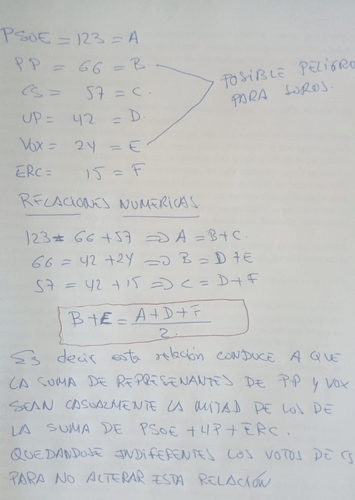 PSOE = 123 = A
PP = 66 = B
CS = 57 = C.
UP = 42 = D
VOX = 24 = E
ERC = 15 = F
POSIBLE PELIGRO
PARA SOROS.
RELACIONES NUMERICAS
123 = 66 + 57 => A = B+C
66 = 42 + 24 => B = D+E
57 = 42 + 15 => C = D+F
B+E = A+D+F
2
Es decir esta relación CONDUCE A QUE
LA SUMA DE REPRESENANTES DE PP y VOX
SEAN CASUALMENTE LA MITAD DE LOS DE
LA SUMA DE PSOE + UP + ERC.
QUEDANDOSE INDIFERENTES LOS VOTOS DE CS
PARA NO ALTERAR ESTA RELACIÓN